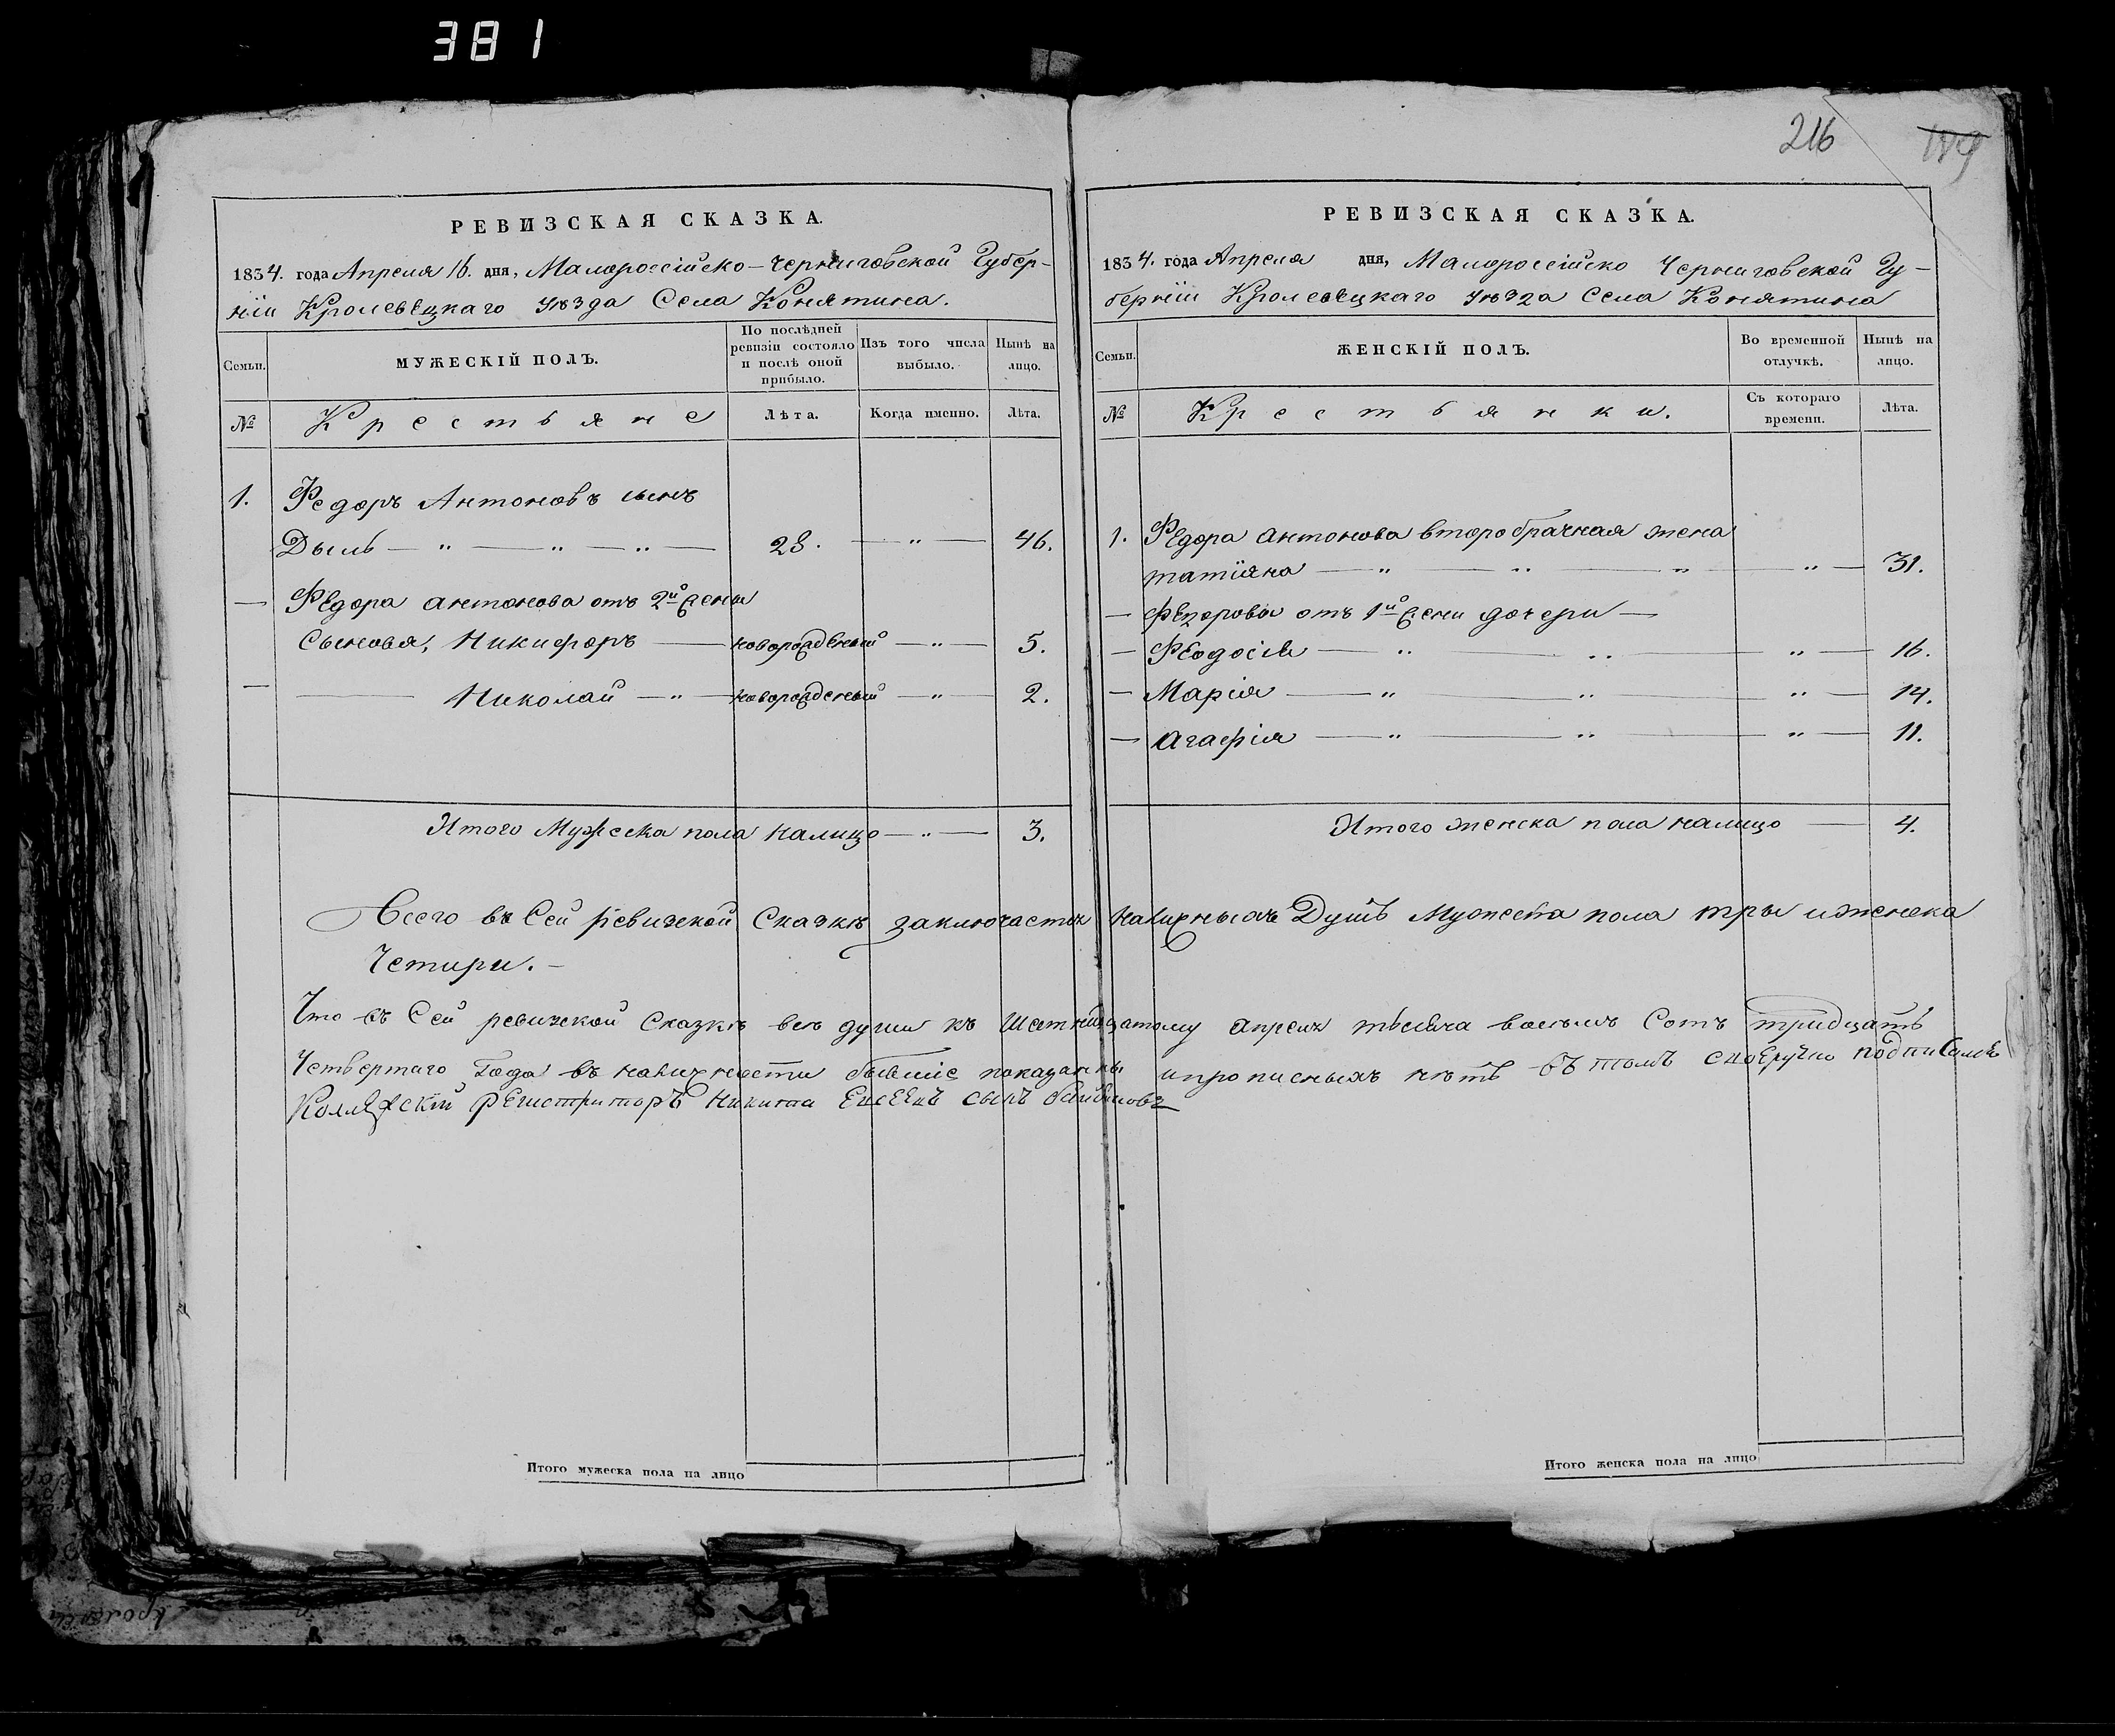 381
216
РЕВИЗСКАЯ СКАЗКА.
1834. года Апреля 16. дня, Малороссійско-Черниговской Губер-
ніи Кролевецкаго уѣзда Села Конятина.
Семьи.
МУЖЕСКІЙ ПОЛЪ.
По послѣдней ревизіи состояло и послѣ оной прибыло.
Изъ того числа выбыло.
Нынѣ на лицо.
№
Крестьяне
Лѣта.
Когда именно.
Лѣта.
1. Федоръ Антоновъ сынъ
Дыль — " — " — " — 28. — " — 46.
— Федора Антонова отъ 2й жены
Сыновья, Никифоръ — новорожденый — " — 5.
— — Николай — " — новорожденый — " — 2.
Итого Мужеска пола налицо — " — 3.
РЕВИЗСКАЯ СКАЗКА.
1834. года Апреля дня, Малороссійско Черниговской Гу-
берніи Кролевецкаго уѣзда Села Конятина
Семьи.
ЖЕНСКІЙ ПОЛЪ.
Во временной отлучкѣ.
Нынѣ на лицо.
№
Крестьянки.
Съ котораго времени.
Лѣта.
1. Федора Антонова второбрачная жена
татіяна — " — " — " — " — 31.
— Федорови отъ 1й жени дочери —
— Феодосія — " — " — " — 16.
— Марія — " — " — " — 14.
— Агафія — " — " — " — 11.
Итого женска пола налицо — 4.
Всего въ Сей ревизской Сказкѣ заключается наличныхъ Душъ Мужеска пола тры и женска
Четири. —
Что въ Сей ревизской Сказкѣ всѣ души къ Шатнадцатому апреля тысяча восемь Сотъ тридцать
Четвертаго Года въ наличности бывшіе показанны и прописныхъ нѣтъ въ томъ своеручно подписался
Коллежскій Регистраторъ Никита Евсеевъ сынъ
Итого мужеска пола на лицо
Итого женска пола на лицо